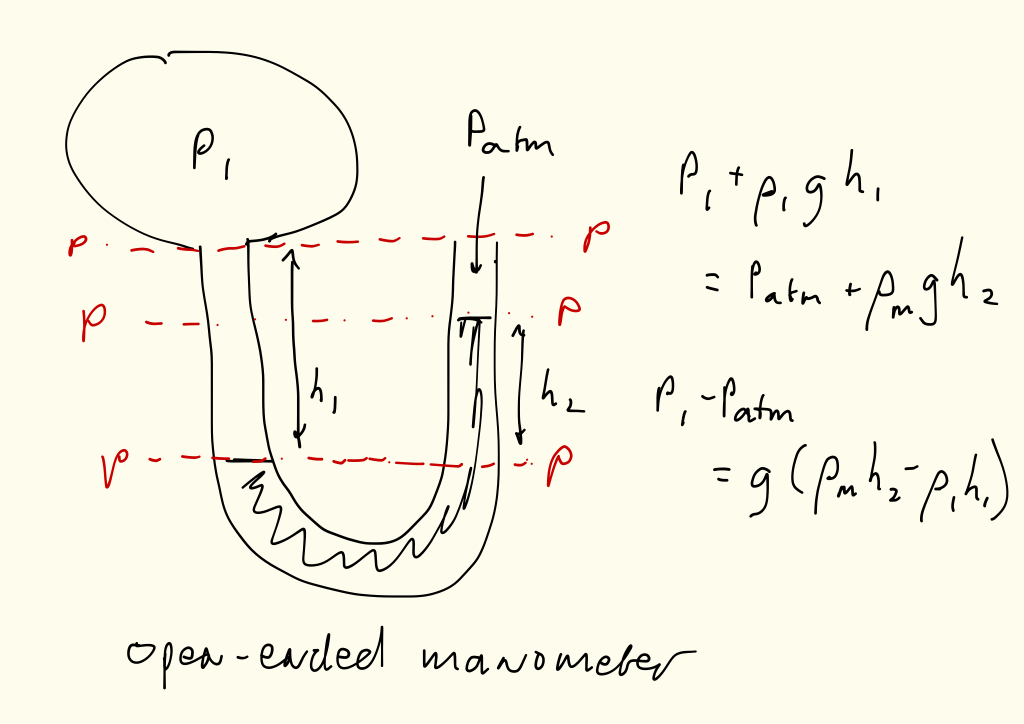 P₁
Patm
P P
P P
P P
h₁
h₂
P₁ + ρ₁ g h₁
= Patm + ρm g h₂
P₁ - Patm
= g (ρm h₂ - ρ₁ h₁)
open-ended manometer